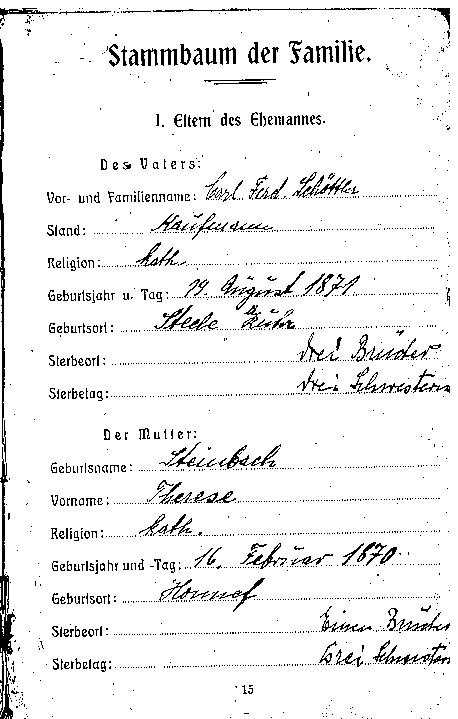 Stammbaum der Familie.
I. Eltern des Ehemannes.
Des Vaters:
Vor- und Familienname: Carl Ferd. Schöttler
Stand: Kaufmann
Religion: kath.
Geburtsjahr u. Tag: 19. August 1871
Geburtsort: Steele a. Ruhr
Sterbeort: drei Brüder
Sterbetag: drei Schwestern
Der Mutter:
Geburtsname: Steinbach
Vorname: Therese
Religion: kath.
Geburtsjahr und -Tag: 16. Februar 1870
Geburtsort: Honnef
Sterbeort: Einen Bruder
Sterbetag: drei Schwestern
15